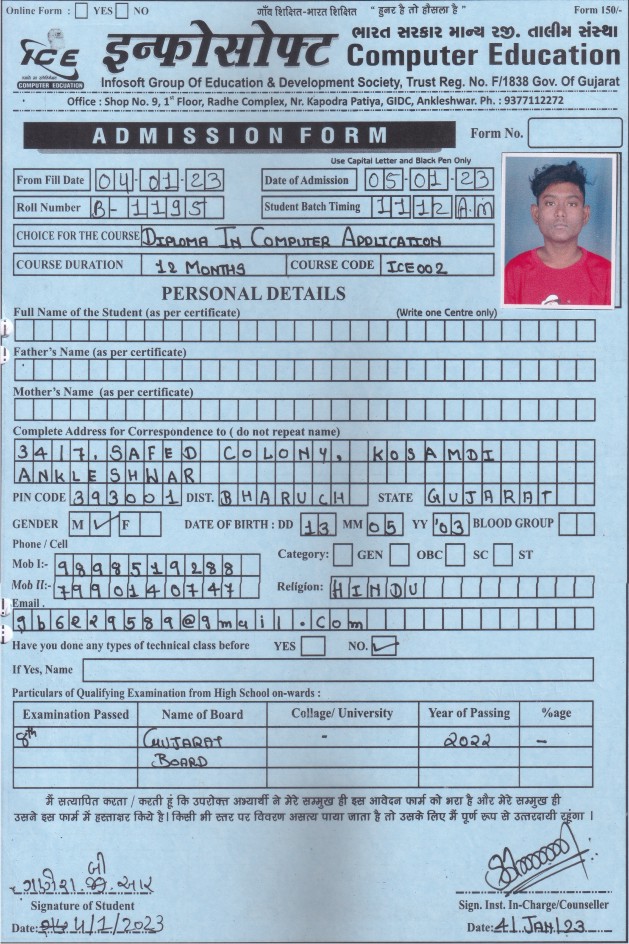 Online Form : YES NO गाँव शिक्षित-भारत शिक्षित " हुनर है तो हौसला है " Form 150/-
ICE इन्फोसोफ्ट ભારત સરકાર માન્ય રજી. તાલીમ સંસ્થા
COMPUTER EDUCATION Computer Education
Infosoft Group Of Education & Development Society, Trust Reg. No. F/1838 Gov. Of Gujarat
Office : Shop No. 9, 1st Floor, Radhe Complex, Nr. Kapodra Patiya, GIDC, Ankleshwar. Ph. : 9377112272
ADMISSION FORM Form No.
Use Capital Letter and Black Pen Only
From Fill Date 04-01-23 Date of Admission 05-01-23
Roll Number B-1195 Student Batch Timing 1112 A.M
CHOICE FOR THE COURSE DIPLOMA IN COMPUTER APPLICATION
COURSE DURATION 12 MONTHS COURSE CODE ICE002
PERSONAL DETAILS
Full Name of the Student (as per certificate) (Write one Centre only)
Father's Name (as per certificate)
Mother's Name (as per certificate)
Complete Address for Correspondence to ( do not repeat name)
3417, SAFED COLONY, KOSAMDI
ANKLESHWAR
PIN CODE 393001 DIST. BHARUCH STATE GUJARAT
GENDER M ✓ F DATE OF BIRTH : DD 13 MM 05 YY '03 BLOOD GROUP
Phone / Cell
Mob I:- 9898519288 Category: GEN OBC SC ST
Mob II:- 7990140747 Religion: HINDU
Email .
gb6229589@gmail.com
Have you done any types of technical class before YES NO. ✓
If Yes, Name
Particulars of Qualifying Examination from High School on-wards :
Examination Passed Name of Board Collage/ University Year of Passing %age
8th GUJARAT - 2022 -
BOARD
मैं सत्यापित करता / करती हूं कि उपरोक्त अभ्यार्थी ने मेरे सम्मुख ही इस आवेदन फार्म को भरा है और मेरे सम्मुख ही
उसने इस फार्म में हस्ताक्षर किये है। किसी भी स्तर पर विवरण असत्य पाया जाता है तो उसके लिए मैं पूर्ण रूप से उत्तरदायी रहूंगा ।
બી
ગણેશ. આર
Signature of Student Sign. Inst. In-Charge/Counseller
Date: 4/1/2023 Date: 4/JAN/23